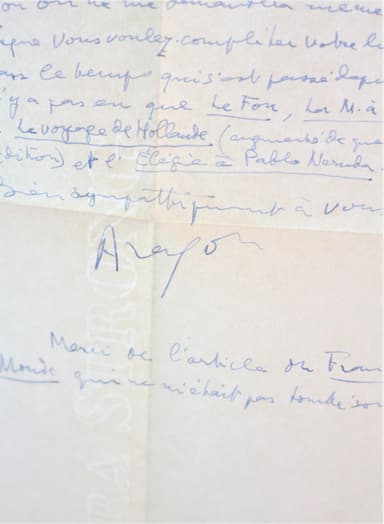 on ne me demandera même
vous voulez compléter votre
le temps qui s'est passé dep
n'y a pas eu que Le Fou, La M. à
Le voyage de Hollande (augmenté de que
édition) et l'Elégie à Pablo Neruda.
Bien sympathiquement à vou
Aragon
Merci de l'article de Fran
Monde qui ne m'était pas tombé sou